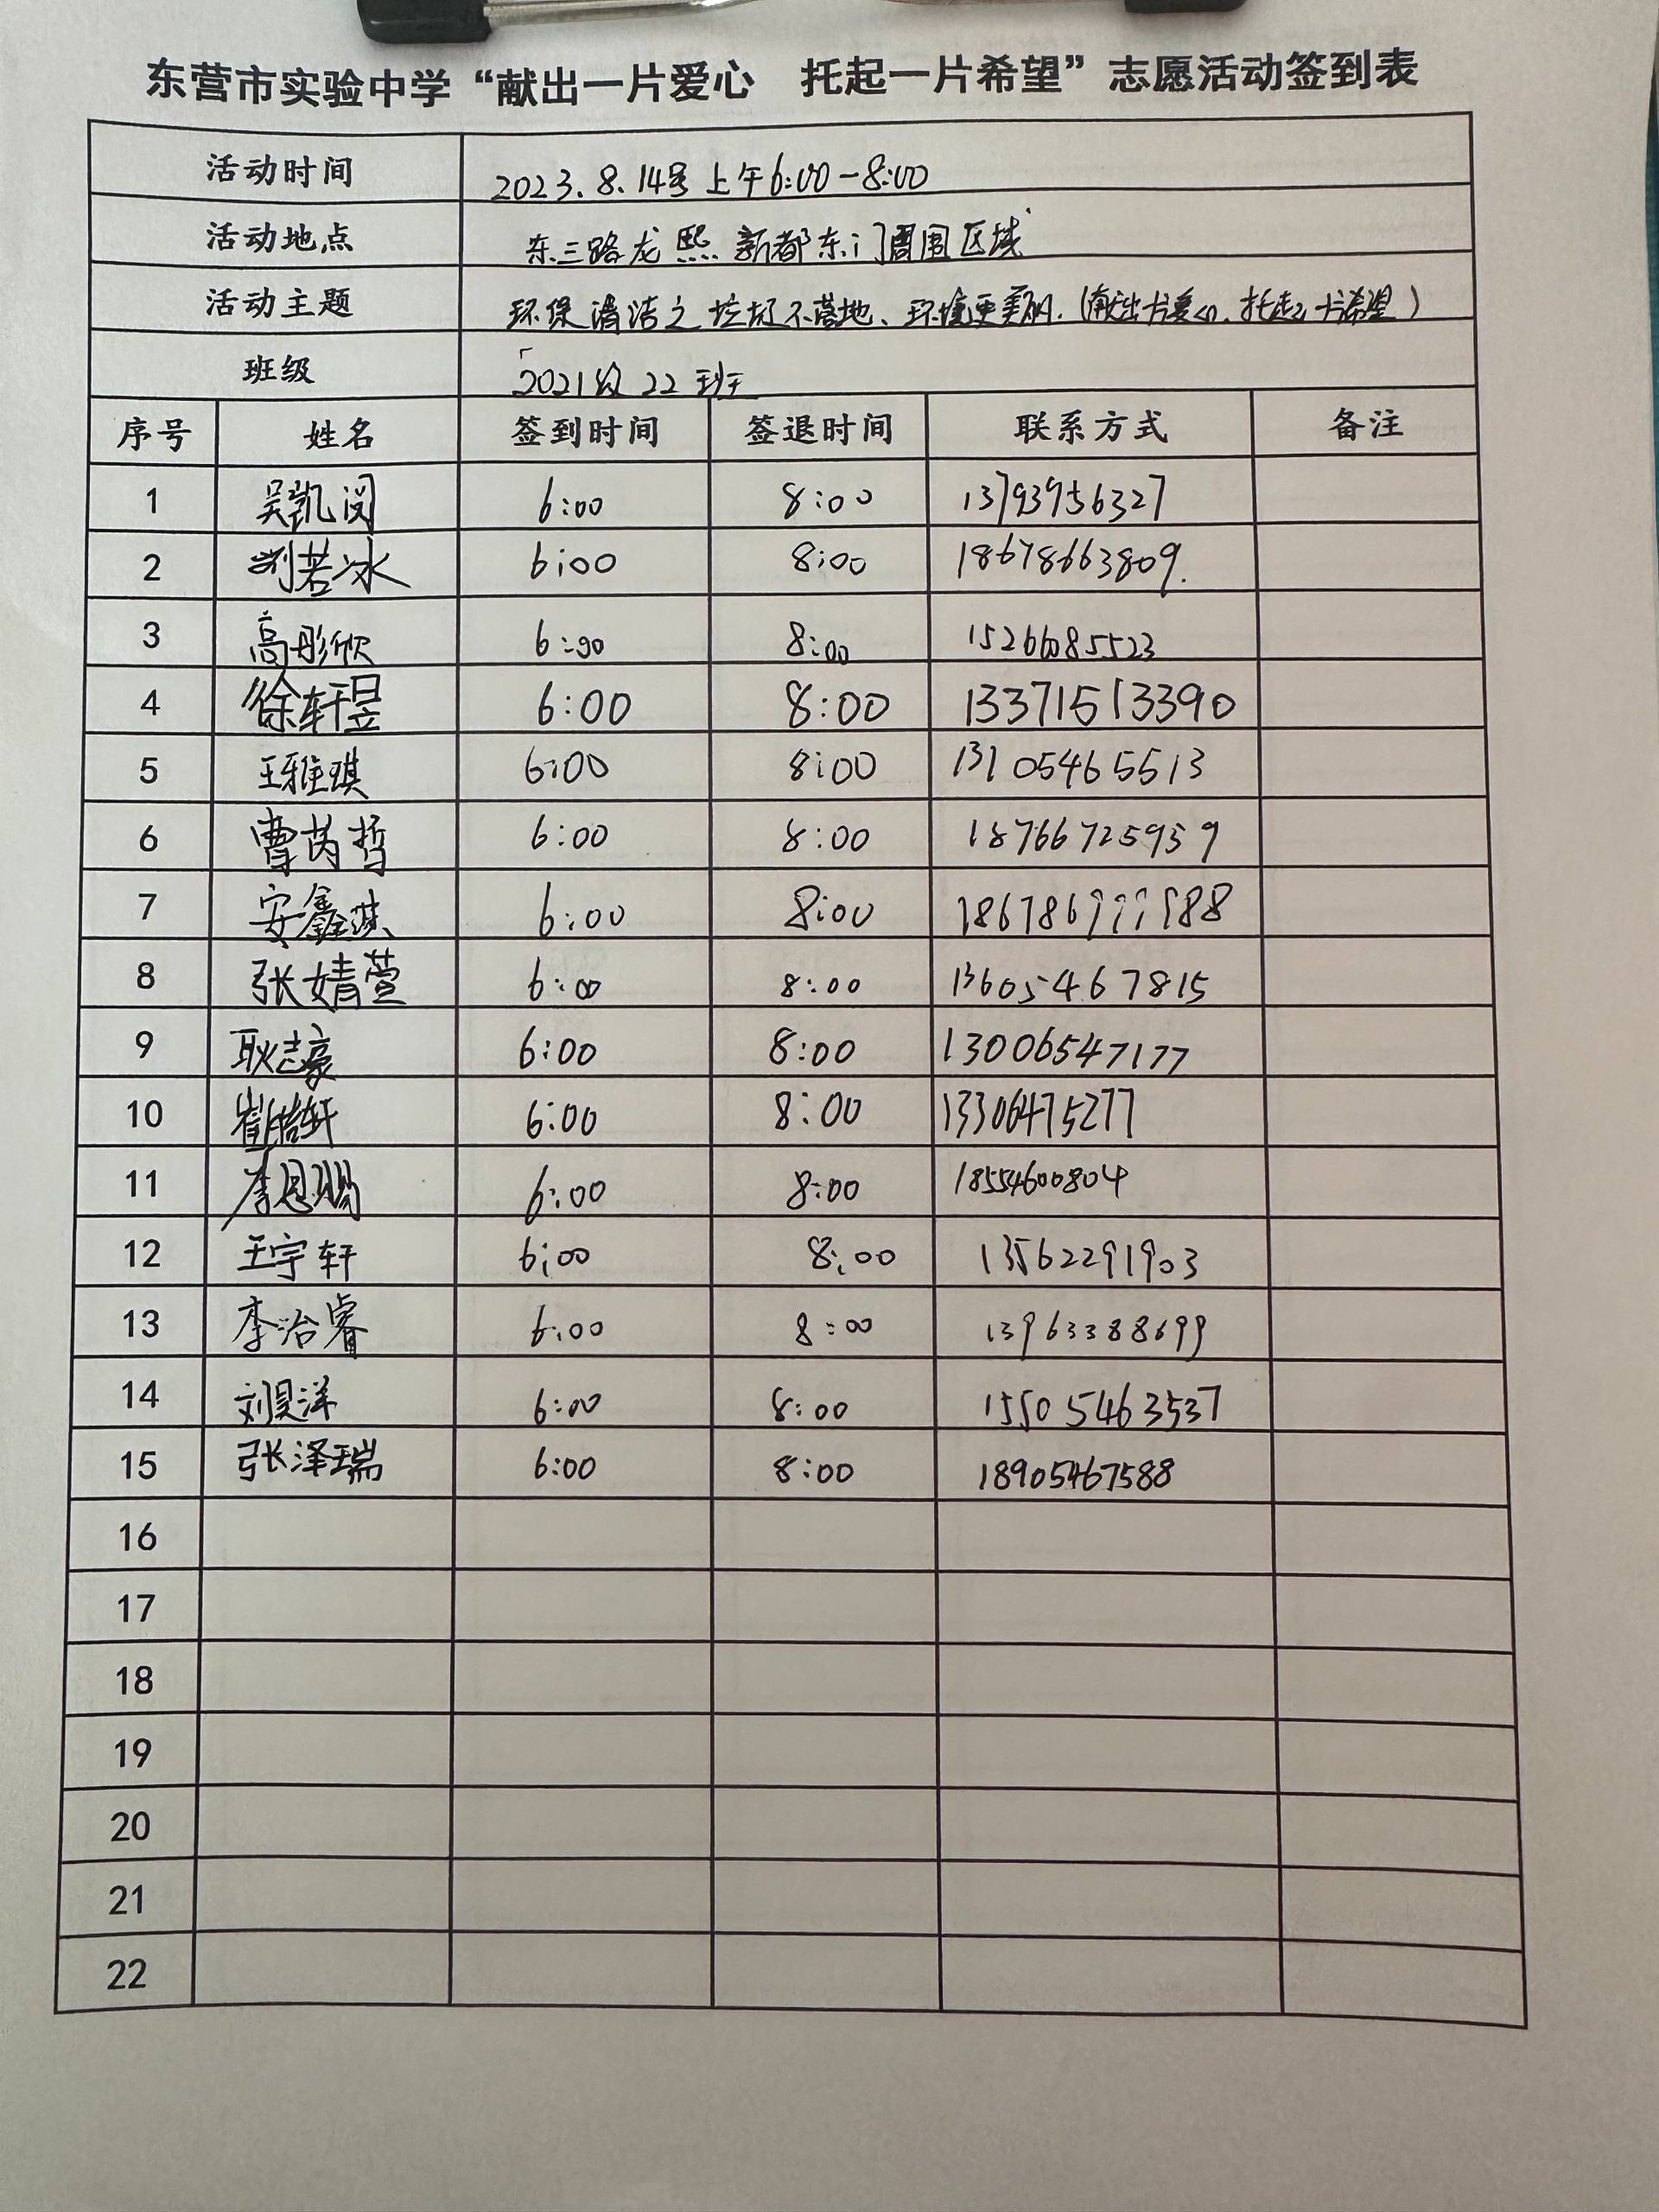 东营市实验中学“献出一片爱心 托起一片希望”志愿活动签到表
活动时间 2023.8.14号上午6:00-8:00
活动地点 东三路龙熙新都东门周围区域
活动主题 环保清洁之垃圾不落地、环境更美丽.(献出一片爱心.托起一片希望)
班级 2021级22班
序号 姓名 签到时间 签退时间 联系方式 备注
1 吴凯闵 6:00 8:00 13793956327
2 刘若冰 6:00 8:00 18678663809.
3 高彤欣 6:00 8:00 15266085523
4 徐轩昱 6:00 8:00 13371513390
5 王雅琪 6:00 8:00 13105465513
6 曹芮哲 6:00 8:00 18766725959
7 安鑫琪 6:00 8:00
8 张婧萱 6:00 8:00 13605467815
9 耿志豪 6:00 8:00 13006547177
10 崔皓轩 6:00 8:00 13306475277
11 李恩赐 6:00 8:00 18554600804
12 王宇轩 6:00 8:00 13562291903
13 李治睿 6:00 8:00 13963388699
14 刘昊洋 6:00 8:00 15505463537
15 张泽瑞 6:00 8:00 18905467588
16
17
18
19
20
21
22